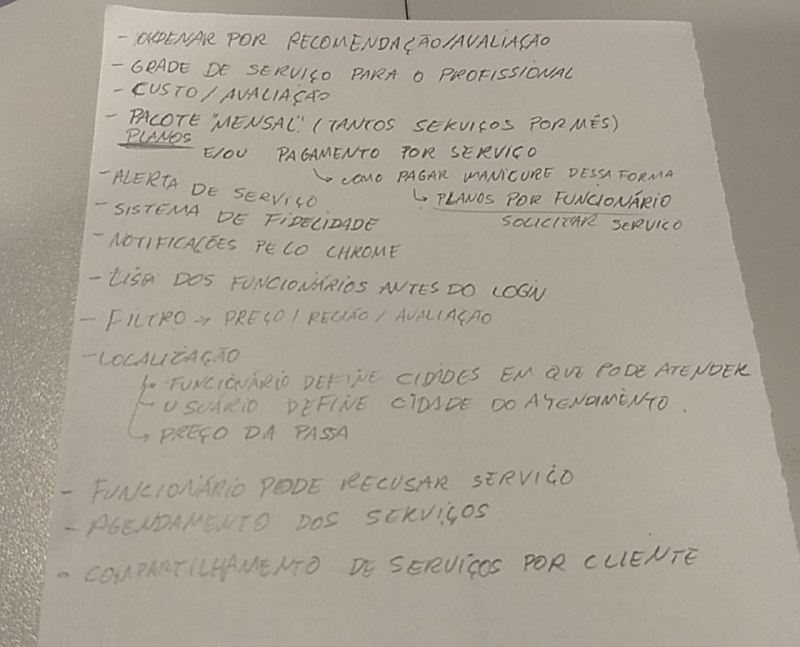 - ORDENAR POR RECOMENDAÇÃO/AVALIAÇÃO
- GRADE DE SERVIÇO PARA O PROFISSIONAL
- CUSTO/AVALIAÇÃO
- PACOTE "MENSAL" (TANTOS SERVIÇOS POR MÊS)
PLANOS
E/OU PAGAMENTO POR SERVIÇO
↳ COMO PAGAR MANICURE DESSA FORMA
- ALERTA DE SERVIÇO
↳ PLANOS POR FUNCIONÁRIO
SOLICITAR SERVIÇO
- SISTEMA DE FIDELIDADE
- NOTIFICAÇÕES PELO CHROME
- LISTA DOS FUNCIONÁRIOS ANTES DO LOGIN
- FILTRO → PREÇO/REGIÃO/AVALIAÇÃO
- LOCALIZAÇÃO
FUNCIONÁRIO DEFINE CIDADES EM QUE PODE ATENDER
- USUÁRIO DEFINE CIDADE DO ATENDIMENTO.
↳ PREÇO DA PASSA
- FUNCIONÁRIO PODE RECUSAR SERVIÇO
- AGENDAMENTO DOS SERVIÇOS
- COMPARTILHAMENTO DE SERVIÇOS POR CLIENTE